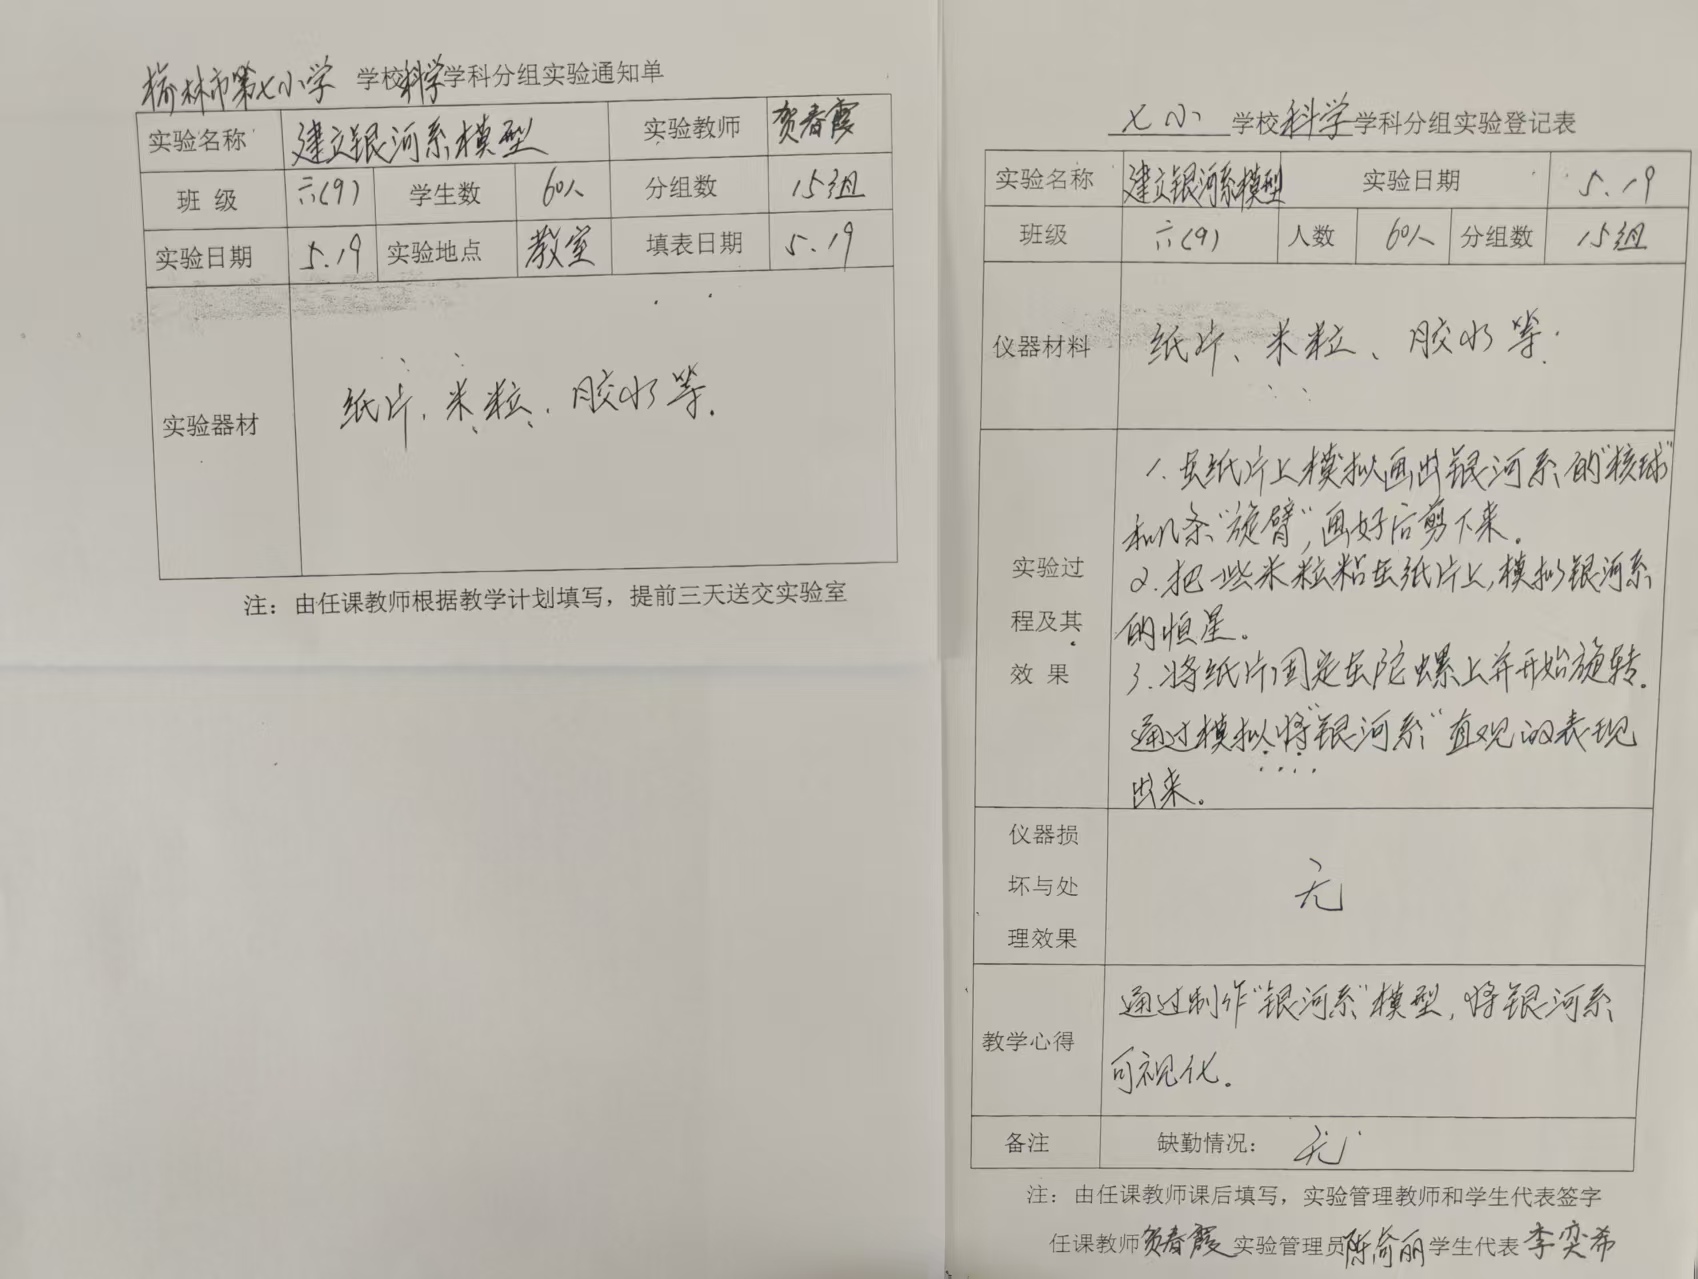 榆林市第七小学 学校科学学科分组实验通知单
实验名称 建立银河系模型 实验教师 贺春霞
班 级 六(9) 学生数 60人 分组数 15组
实验日期 5.19 实验地点 教室 填表日期 5.19
实验器材 纸片、米粒、胶水等.
注：由任课教师根据教学计划填写，提前三天送交实验室
七小 学校科学学科分组实验登记表
实验名称 建立银河系模型 实验日期 5.19
班级 六(9) 人数 60人 分组数 15组
仪器材料 纸片、米粒、胶水等.
实验过
程及其
效 果
1.在纸片上模拟画出银河系的"核球"
和几条"旋臂",画好后剪下来。
2.把一些米粒粘在纸片上,模拟银河系
的恒星。
3.将纸片固定在陀螺上并开始旋转.
通过模拟将"银河系"直观的表现
出来。
仪器损
坏与处
理效果
无
教学心得
通过制作"银河系"模型,将银河系
可视化.
备注 缺勤情况： 无
注：由任课教师课后填写，实验管理教师和学生代表签字
任课教师贺春霞实验管理员陈 丽学生代表李奕希